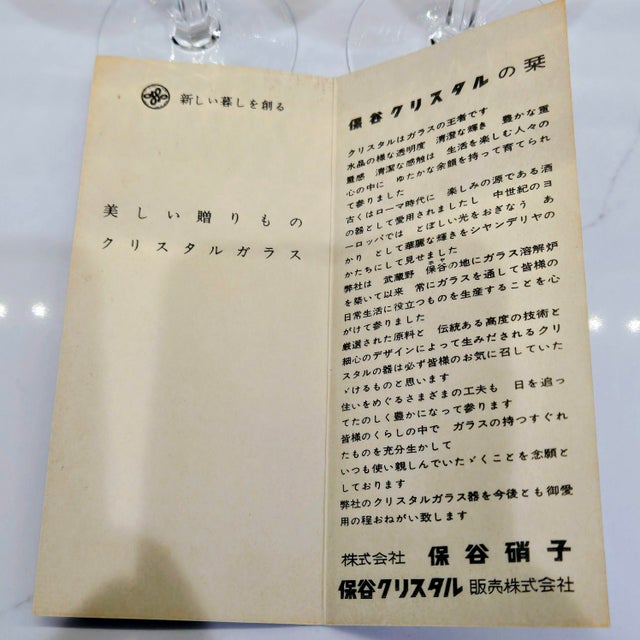 新しい暮しを創る
美しい贈りもの
クリスタルガラス
保谷クリスタルの栞
クリスタルはガラスの王者です
水晶の様な透明度 清澄な輝き 豊かな重
量感 清潔な感触は 生活を楽しむ人々の
心の中に ゆたかな余韻を持って育てられ
て参りました
古くはローマ時代に 楽しみの源である酒
の器として愛用されましたし 中世紀のヨ
ーロッパでは とぼしい光をおぎなう あ
かり として華麗な輝きをシャンデリヤの
かたちにして見せました
弊社は 武蔵野 保谷の地にガラス溶解炉
ホヤ
を築いて以来 常にガラスを通して皆様の
日常生活に役立つものを生産することを心
がけて参りました
厳選された原料と 伝統ある高度の技術と
細心のデザインによって生みだされるクリ
スタルの器は必ず皆様のお気に召していた
ゞけるものと思います
住いをめぐるさまざまの工夫も 日を追っ
てたのしく豊かになって参ります
皆様のくらしの中で ガラスの持つすぐれ
たものを充分生かして
いつも使い親しんでいたゞくことを念願と
しております
弊社のクリスタルガラス器を今後とも御愛
用の程おねがい致します
株式会社 保谷硝子
保谷クリスタル 販売株式会社